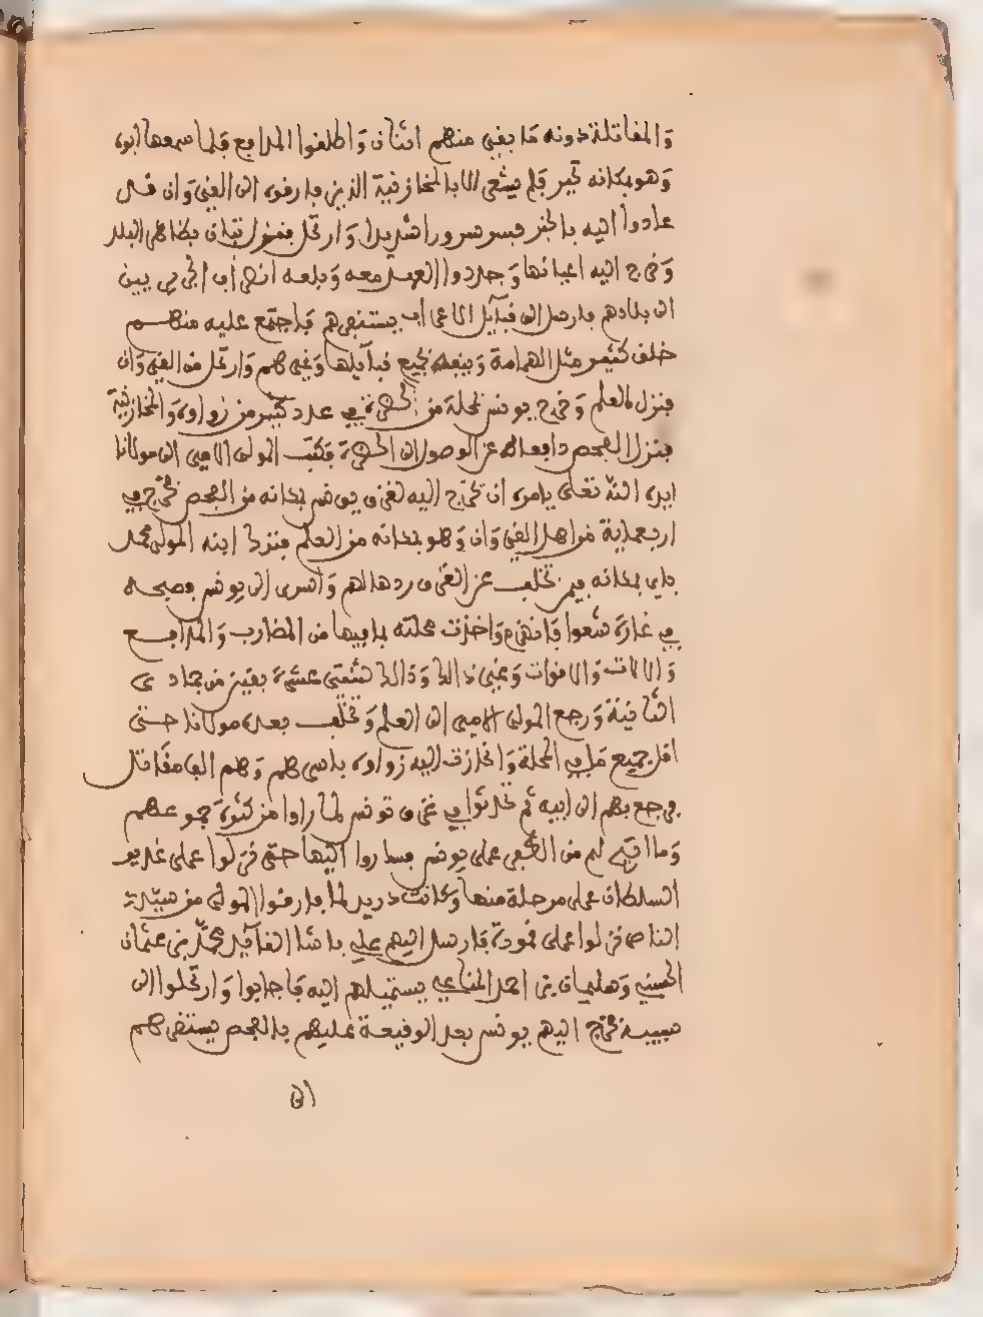 والمقاتلة دونه ما بقي منهم اثنان واطلقوا المدافع فلما سمعها ابوه
وهو بمكانه تحير فلم يشعر الا بالمخازنية الذين فارقوه الى القيروان قد
عادوا اليه بالخبر فسر سرورا شديدا وارتحل فنزل بظاهر البلد
وخرج اليه اعيانها وجددوا العهد معه وبلغه انصراف الجريديين
الى بلادهم فارسل الى قبائل الاعراب يستنفرهم فاجتمع عليه منهم
خلق كثير مثل الهمامة وبعض جميع قبايلها وغيرهم وارتحل من القيروان
فنزل العلم وخرج يونس بمحلة من الحضرة في عدد كثير من زواوه والمخازنية
فنزل الفحص دافعا له عن الوصول الى الحضرة فكتب المولى الامير الى مولانا
ايده الله تعلى يامره ان يخرج اليه لغزو يونس بمكانه من الفحص فخرج في
اربعماية من اهل القيروان وهو بمكانه من العلم فنزل ابنه المولى محمد
باي بمكانه فيمن تخلف عن الغزو ردءا لهم واسرى الى يونس فصبحه
في غارة شعوا فانهزم واخذت محلته بما فيها من المضارب والمدافع
والالات والاقوات وغير ذالك وذالك لثنتي عشرة بقين من جمادى
الثانية ورجع المولى الامير الى العلم وتخلف بعده مولانا حتى
اقل جميع ما في المحلة وانحازت اليه زواوه باسرهم وهم الف مقاتل
فرجع بهم الى ابيه ثم تحدثوا في غزو تونس لما راوا من كثرة جموعهم
وما اتيح لهم من الظفر على يونس فساروا اليها حتى نزلوا على غدير
السلطان على مرحلة منها وكانت دريد لما فارقوا المولى من سبيبة
الناصر نزلوا على قمودة فارسل اليهم علي باشا القايد محمد بن عثمان
الحسيني وسليمان بن احمد المناعي يستميلهم اليه فاجابوا وارتحلوا الى
سبيبة فخرج اليهم يونس بعد الوقيعة عليهم بالفحص يستنفرهم
الى